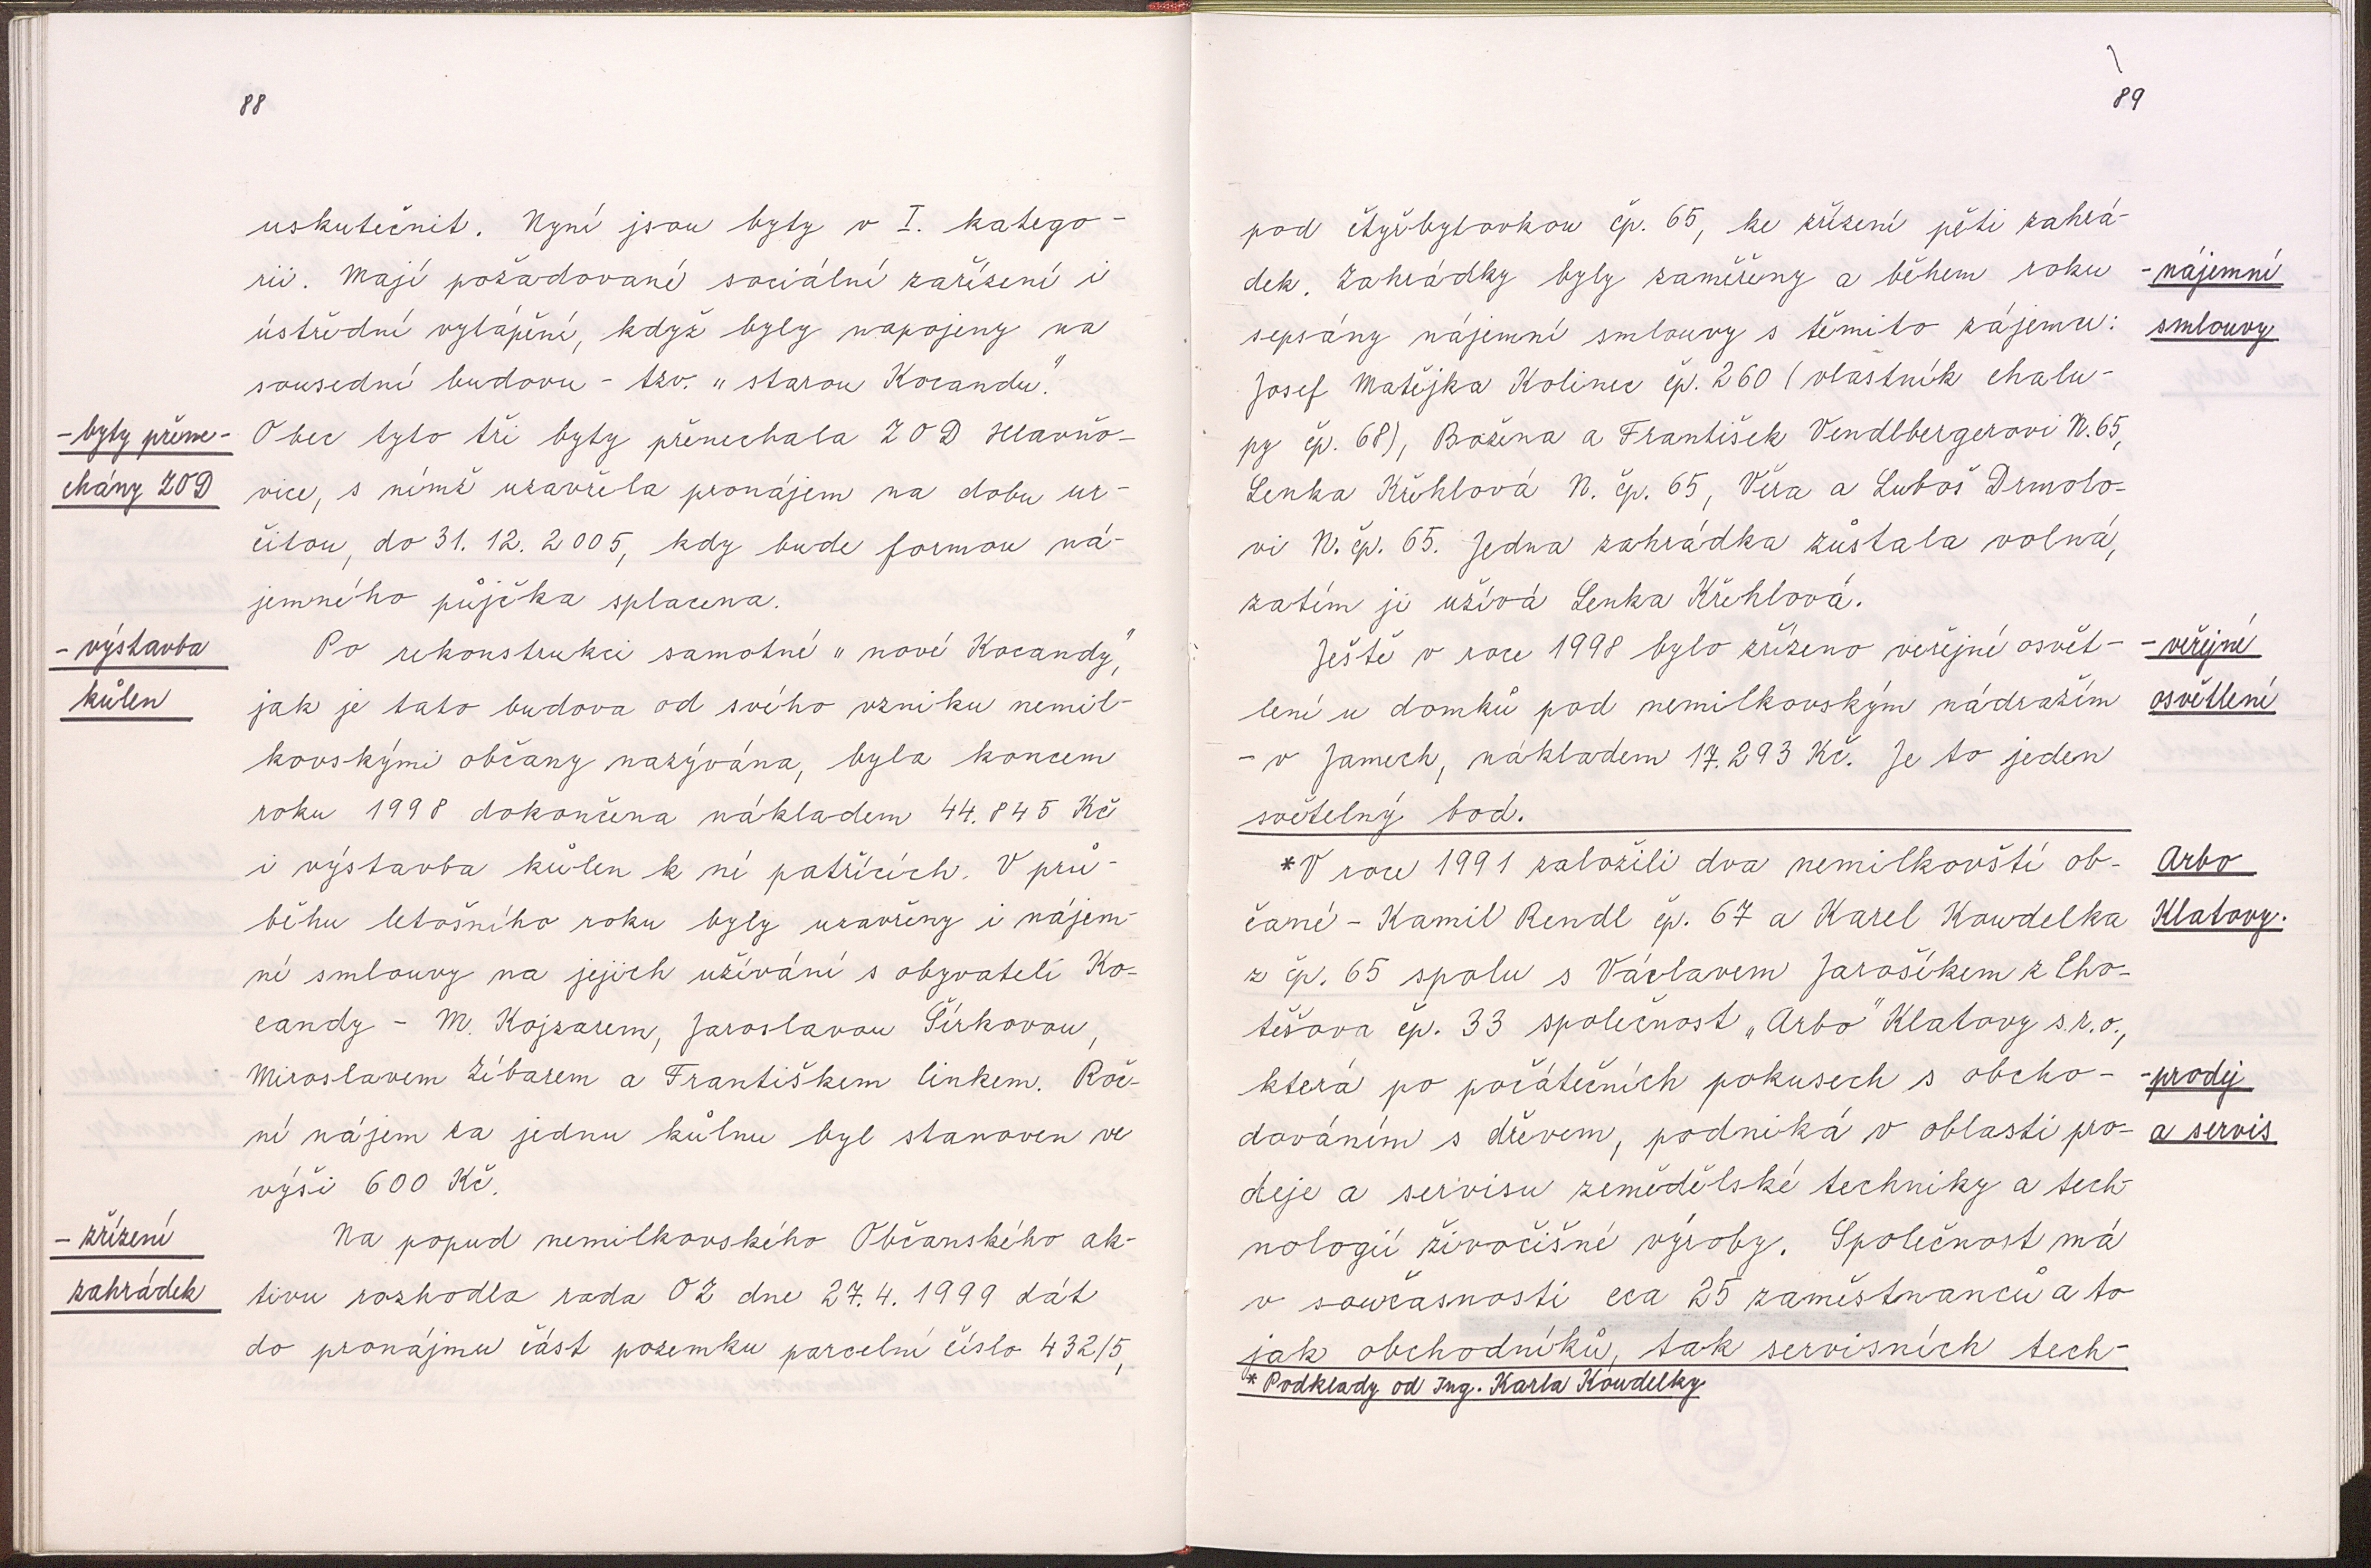 88
uskutečnit. Nyní jsou byty v I. katego-
rii. Mají požadované sociální zařízení i
ústřední vytápění, když byly napojeny na
sousední budovu - tzv. "starou Kocandu".
- byty přene-
chány ZOD
Obec tyto tři byty přenechala ZOD Hlavňo-
vice, s nímž uzavřela pronájem na dobu ur-
čitou, do 31. 12. 2005, kdy bude formou ná-
jemného půjčka splacena.
- výstavba
kůlen
Po rekonstrukci samotné "nové Kocandy",
jak je tato budova od svého vzniku nemil-
kovskými občany nazývána, byla koncem
roku 1998 dokončena nákladem 44.845 Kč
i výstavba kůlen k ní patřících. V prů-
běhu letošního roku byly uzavřeny i nájem-
ní smlouvy na jejich užívání s obyvateli Ko-
candy - M. Kojzarem, Jaroslavou Šírkovou,
Miroslavem Žíbarem a Františkem Linkem. Roč-
ní nájem za jednu kůlnu byl stanoven ve
výši 600 Kč.
- zřízení
zahrádek
Na popud nemilkovského Občanského ak-
tivu rozhodla rada OZ dne 27. 4. 1999 dát
do pronájmu část pozemku parcelní číslo 432/5,
89
pod čtyřbytovkou čp. 65, ke zřízení pěti zahrá-
dek. Zahrádky byly zaměřeny a během roku
sepsány nájemní smlouvy s těmito zájemci:
- nájemní
smlouvy
Josef Matějka Kolinec čp. 260 (vlastník chalu-
py čp. 68), Božena a František Vendlbergerovi N. 65,
Lenka Křehlová N. čp. 65, Věra a Luboš Drmolo-
vi N. čp. 65. Jedna zahrádka zůstala volná,
zatím ji užívá Lenka Křehlová.
Ještě v roce 1998 bylo zřízeno veřejné osvět-
lení u domků pod nemilkovským nádražím
- v Jamech, nákladem 17.293 Kč. Je to jeden
světelný bod.
- veřejné
osvětlení
*V roce 1991 založili dva nemilkovští ob-
čané - Kamil Rendl čp. 67 a Karel Koudelka
z čp. 65 spolu s Václavem Jarošíkem z Cho-
těšova čp. 33 společnost "Arbo" Klatovy s.r.o.,
která po počátečních pokusech s obcho-
dováním s dřevem, podniká v oblasti pro-
deje a servisu zemědělské techniky a tech-
nologií živočišné výroby. Společnost má
v současnosti cca 25 zaměstnanců a to
jak obchodníků, tak servisních tech-
Arbo
Klatovy.
- prodej
a servis
* Podklady od Ing. Karla Koudelky